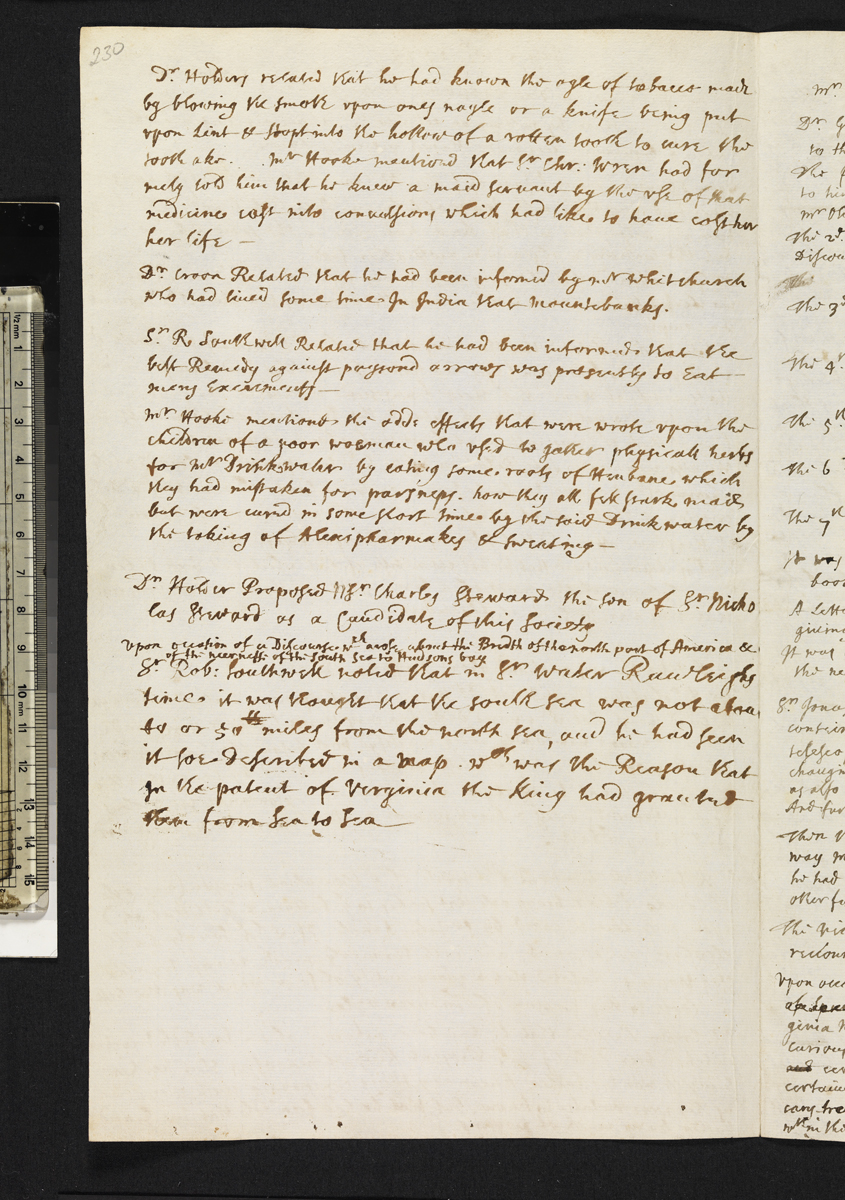 230
Dr Holders related that he had known the oyle of tobacco made
by blowing the smoke vpon ones nayle or a knife being put
vpon Lint & stopt into the hollow of a rotten tooth to cure the
tooth ake. mr Hooke mentiond that Sr Chr: Wren had for
mely told him that he knew a maid servant by the vse of that
medicine cast into convulsions which had like to haue cost her
her life —
Dr Croon Related that he had been informed by mr whitchurch
who had liued some time In India that mountebanks.
Sr R. Southwell Related that he had been informed that the
best Remedy against poysond arrows was presently to Eat
mens Excrements —
mr Hooke mentiond the odd effects that were wrote vpon the
children of a poor woeman who vsed to gather physicall herbs
for mr Drinkwater by eating some roots of Henbane which
they had mistaken for parsneps. how they all fell stark mad
but were cured in some short time by the said Drinkwater by
the taking of Alexipharmakes & sweating —
Dr Holder Proposed Sr Charles Steward the son of Sr Nicho
las Steward as a Candidate of this Society
vpon occation of a Discourse wch arose about the Bridth of the north part of America &
of the nearness of the South Sea to Hudsons bay
Sr Rob: Southwell noted that in Sr Walter Rawleighs
time it was thought that the south sea was not aboue
40 or 50th miles from the north sea, and he had seen
it soe Described in a map. wch was the Reason that
In the patent of Verginia the King had granted
them from Sea to Sea —
mr
Dr
to th
The
to hi
The 2d
Discou
The
The 3d
The 4
The 5th
The 6
The 7th
It was
A Lette
giuing
It was
the ne
Sr Jonas
telesco
as also
And fur
Then
way
he had
other
The
vpon occ
ginia
curious
and
certain